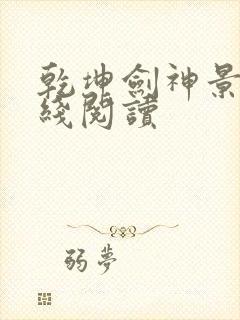 乾坤劍神景
綫閱讀
弱夢